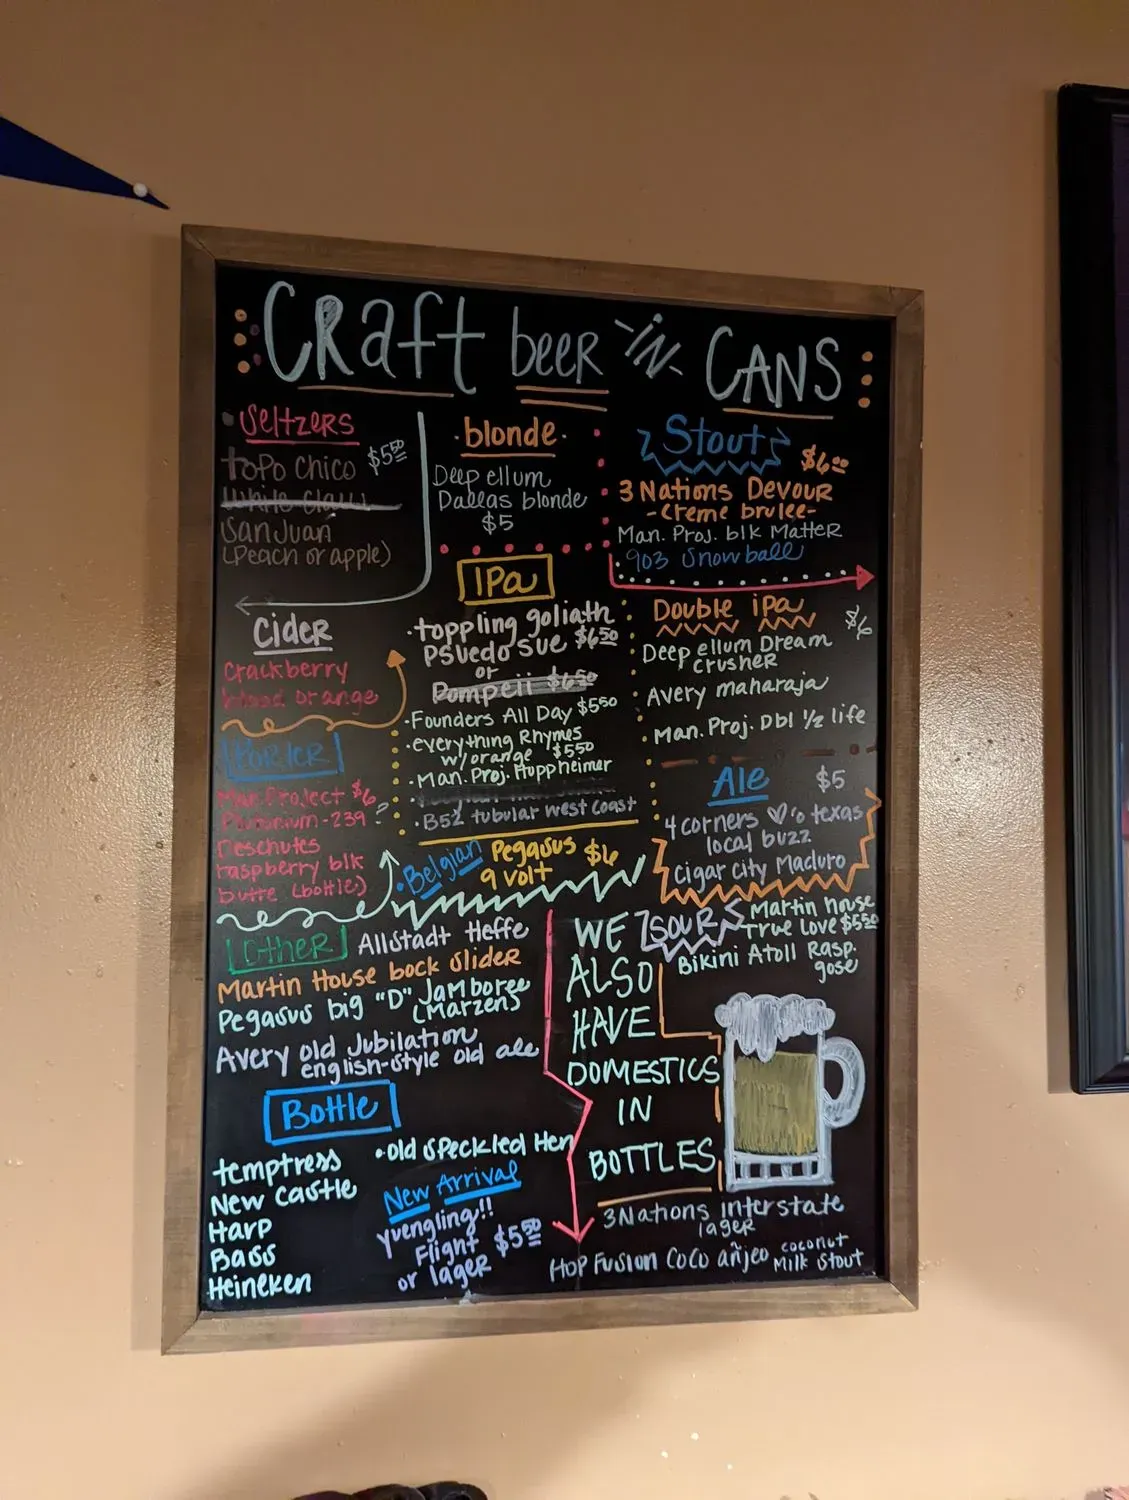 Craft beer -in- Cans
Seltzers
Topo Chico $5.50
White Claw
San Juan
(Peach or apple)
Cider
Crackberry
blood orange
Porter
Man. Project $6
Plutonium-239 ?
Deschutes
raspberry blk
butte (bottle)
·blonde·
Deep ellum
Dallas blonde
$5
IPa
·toppling goliath
Psuedo Sue $6.50
or
Pompeii $6.50
·Founders All Day $5.50
·everything Rhymes
w/orange $5.50
·Man. Proj. Hoppheimer
·B52 tubular west coast
·Belgian Pegasus $6
9 volt
Stout $6.00
3 Nations Devour
-creme brulee-
Man. Proj. blk Matter
903 Snowball
Double ipa $6
Deep ellum Dream
crusher
Avery maharaja
Man. Proj. Dbl ½ life
Ale $5
4 corners ♡'o texas
local buzz
Cigar City Maduro
Sour Martin House
True Love $5.50
Bikini Atoll Rasp.
gose
Other Allstadt Heffe
Martin House bock Slider
Pegasus big "D" Jamboree
(Marzens
Avery old Jubilation
english-style old ale
WE
ALSO
HAVE
DOMESTICS
IN
BOTTLES
Bottle
temptress
New Castle
Harp
Bass
Heineken
·Old Speckled Hen
New Arrival
yuengling!!
Flight $5.50
or lager
3Nations interstate
lager
Hop Fusion Coco añjeo coconut
Milk Stout